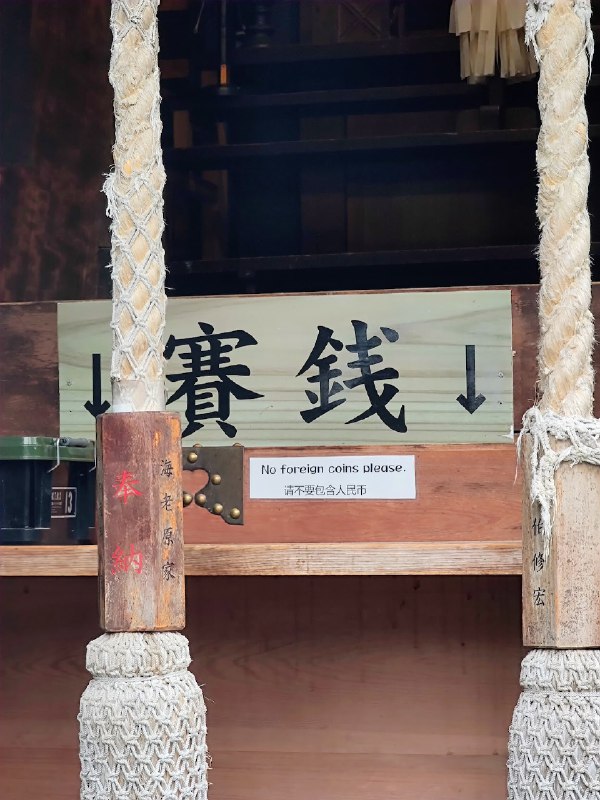 ↓ 賽 銭 ↓
No foreign coins please.
请不要包含人民币
奉納
海老原家
修宏